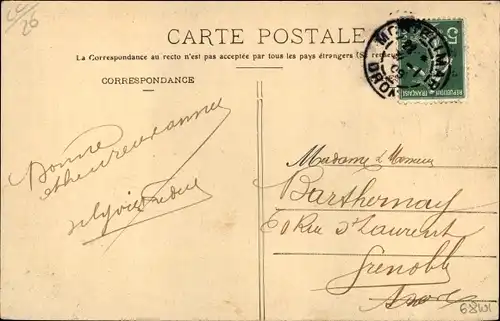 26
CARTE POSTALE
La Correspondance au recto n'est pas acceptée par tous les pays étrangers (Se
CORRESPONDANCE
MONTELIMAR
DROM
5
REPUBLIQUE FRANÇAISE
Bonne
et heureuse année
Madame & Monsieur
Barthernay
60 Rue St Laurent
Grenoble
Isère
68